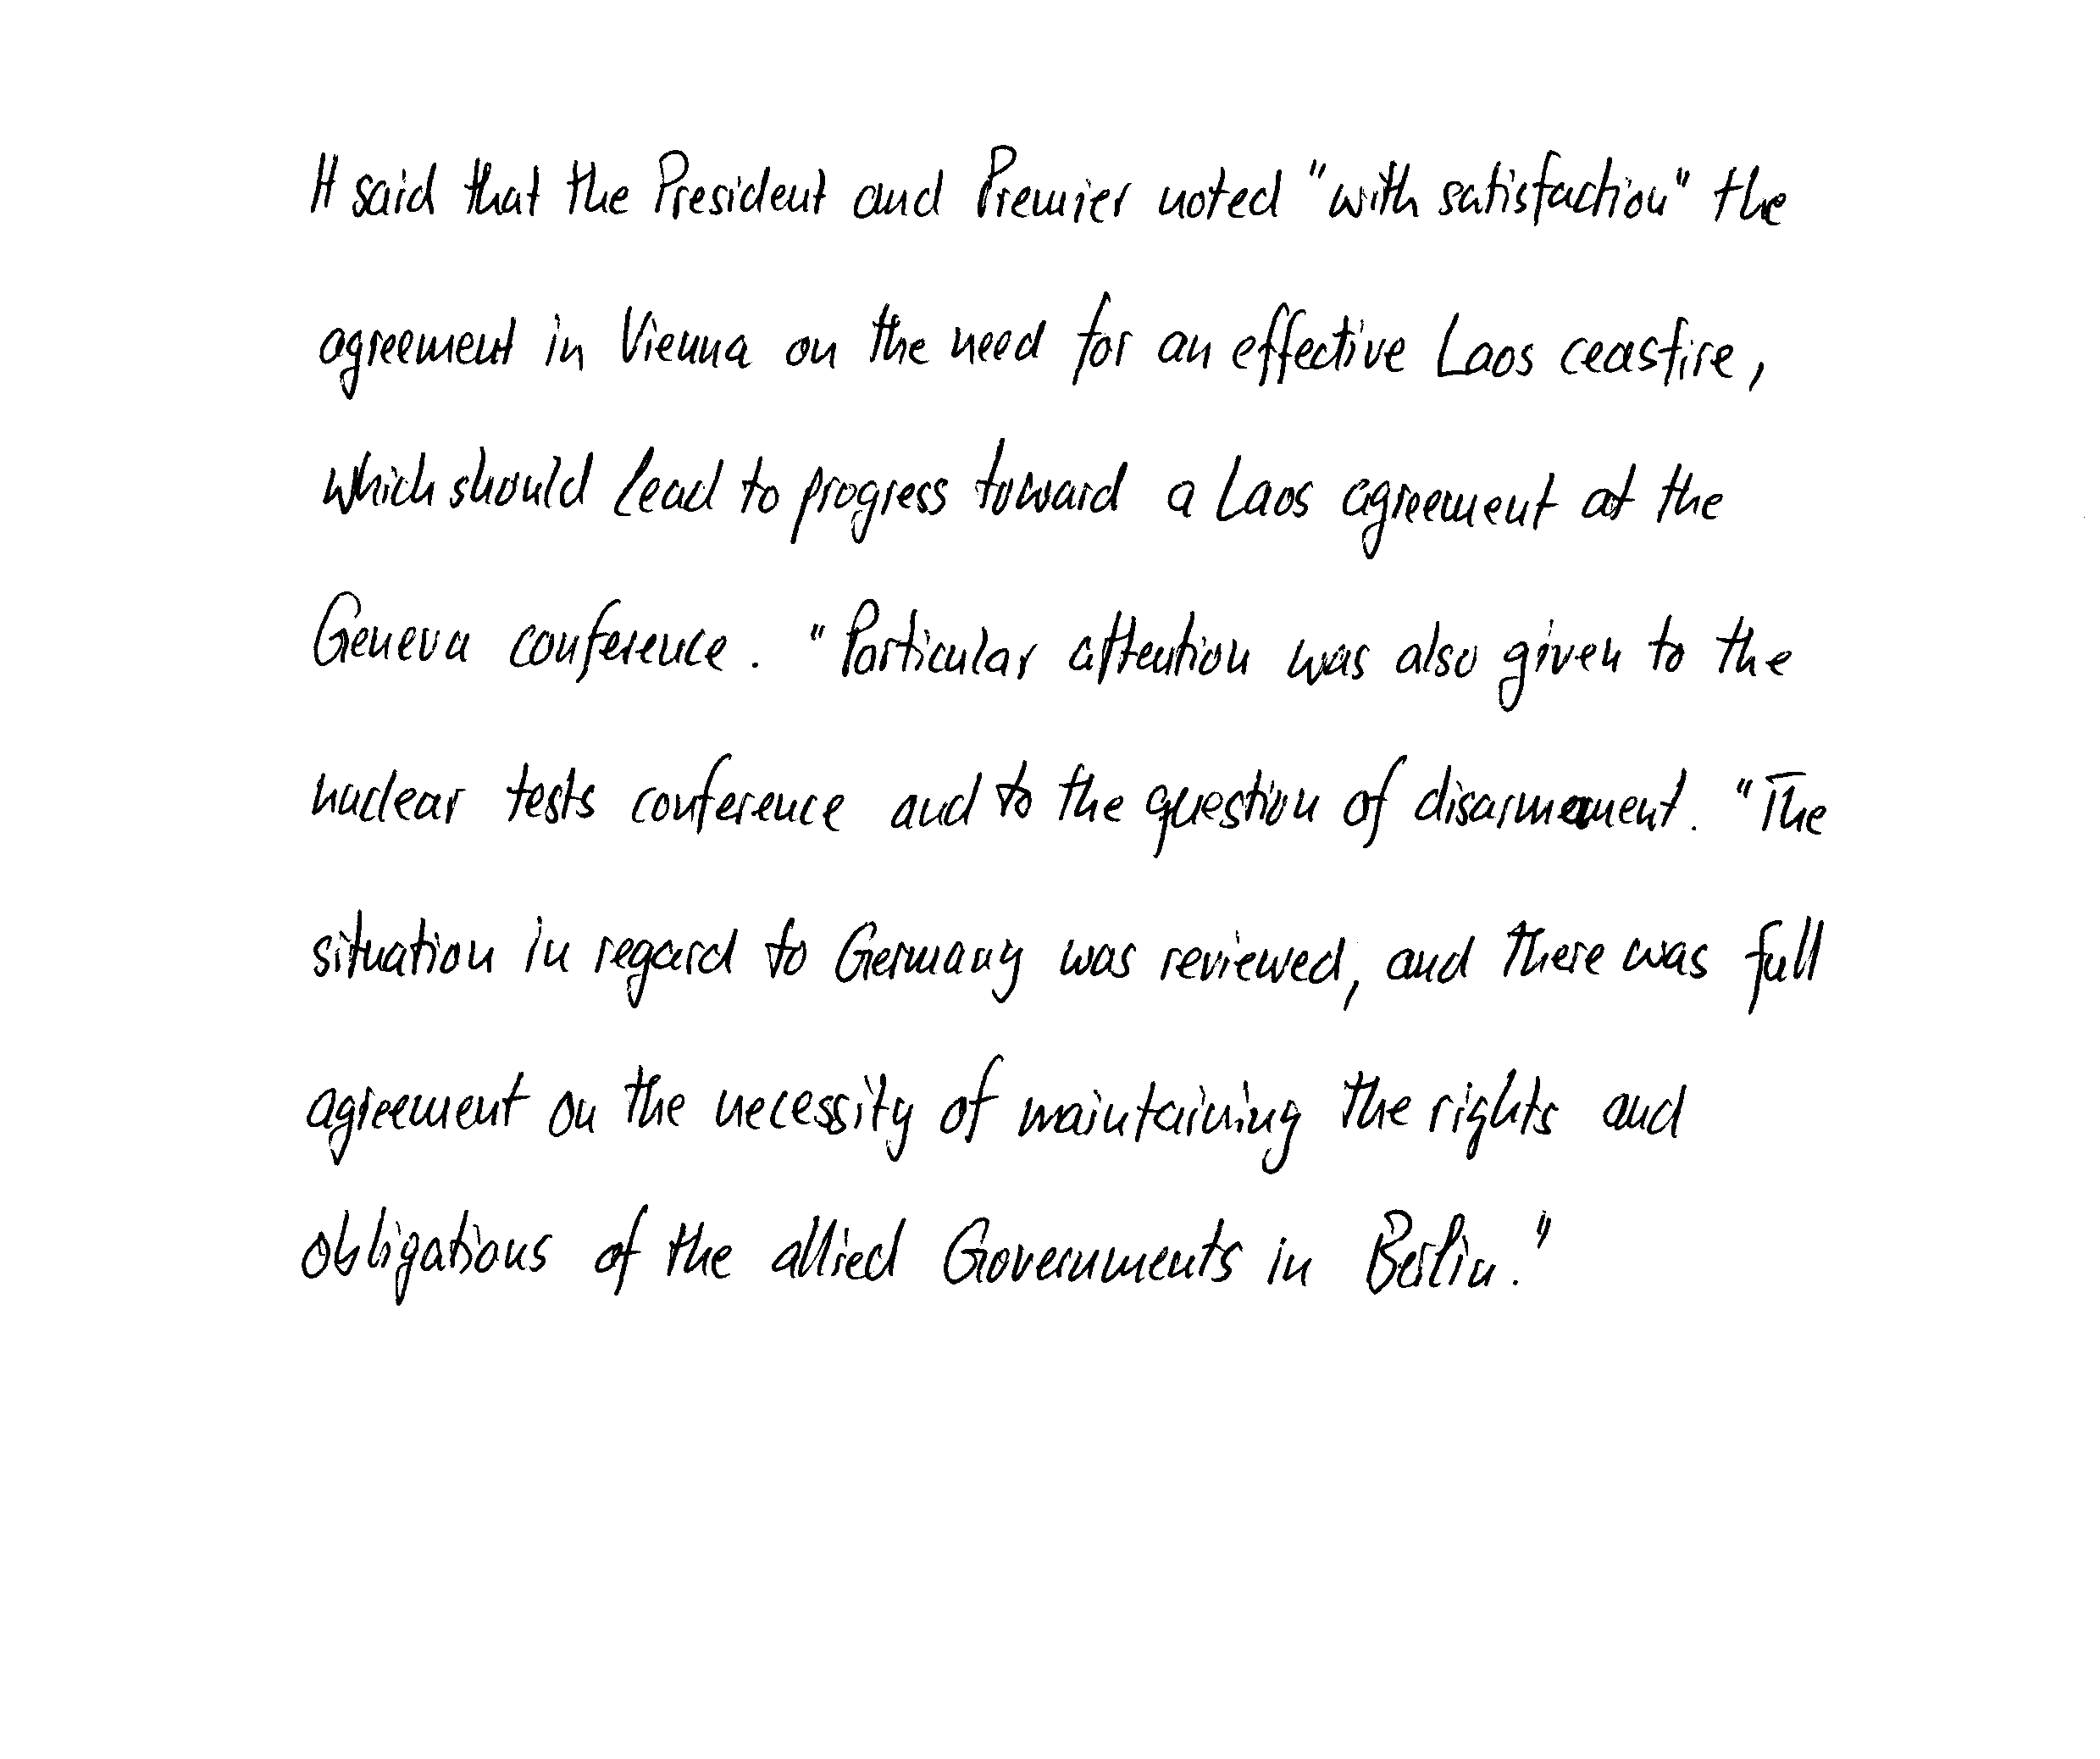 It said that the President and Premier noted "with satisfaction" the
agreement in Vienna on the need for an effective Laos ceasfire,
which should lead to progress toward a Laos agreement at the
Geneva conference. "Particular attention was also given to the
nuclear tests conference and to the question of disarmement. "The
situation in regard to Germany was reviewed, and there was full
agreement on the necessity of maintaining the rights and
obligations of the allied Governments in Berlin."